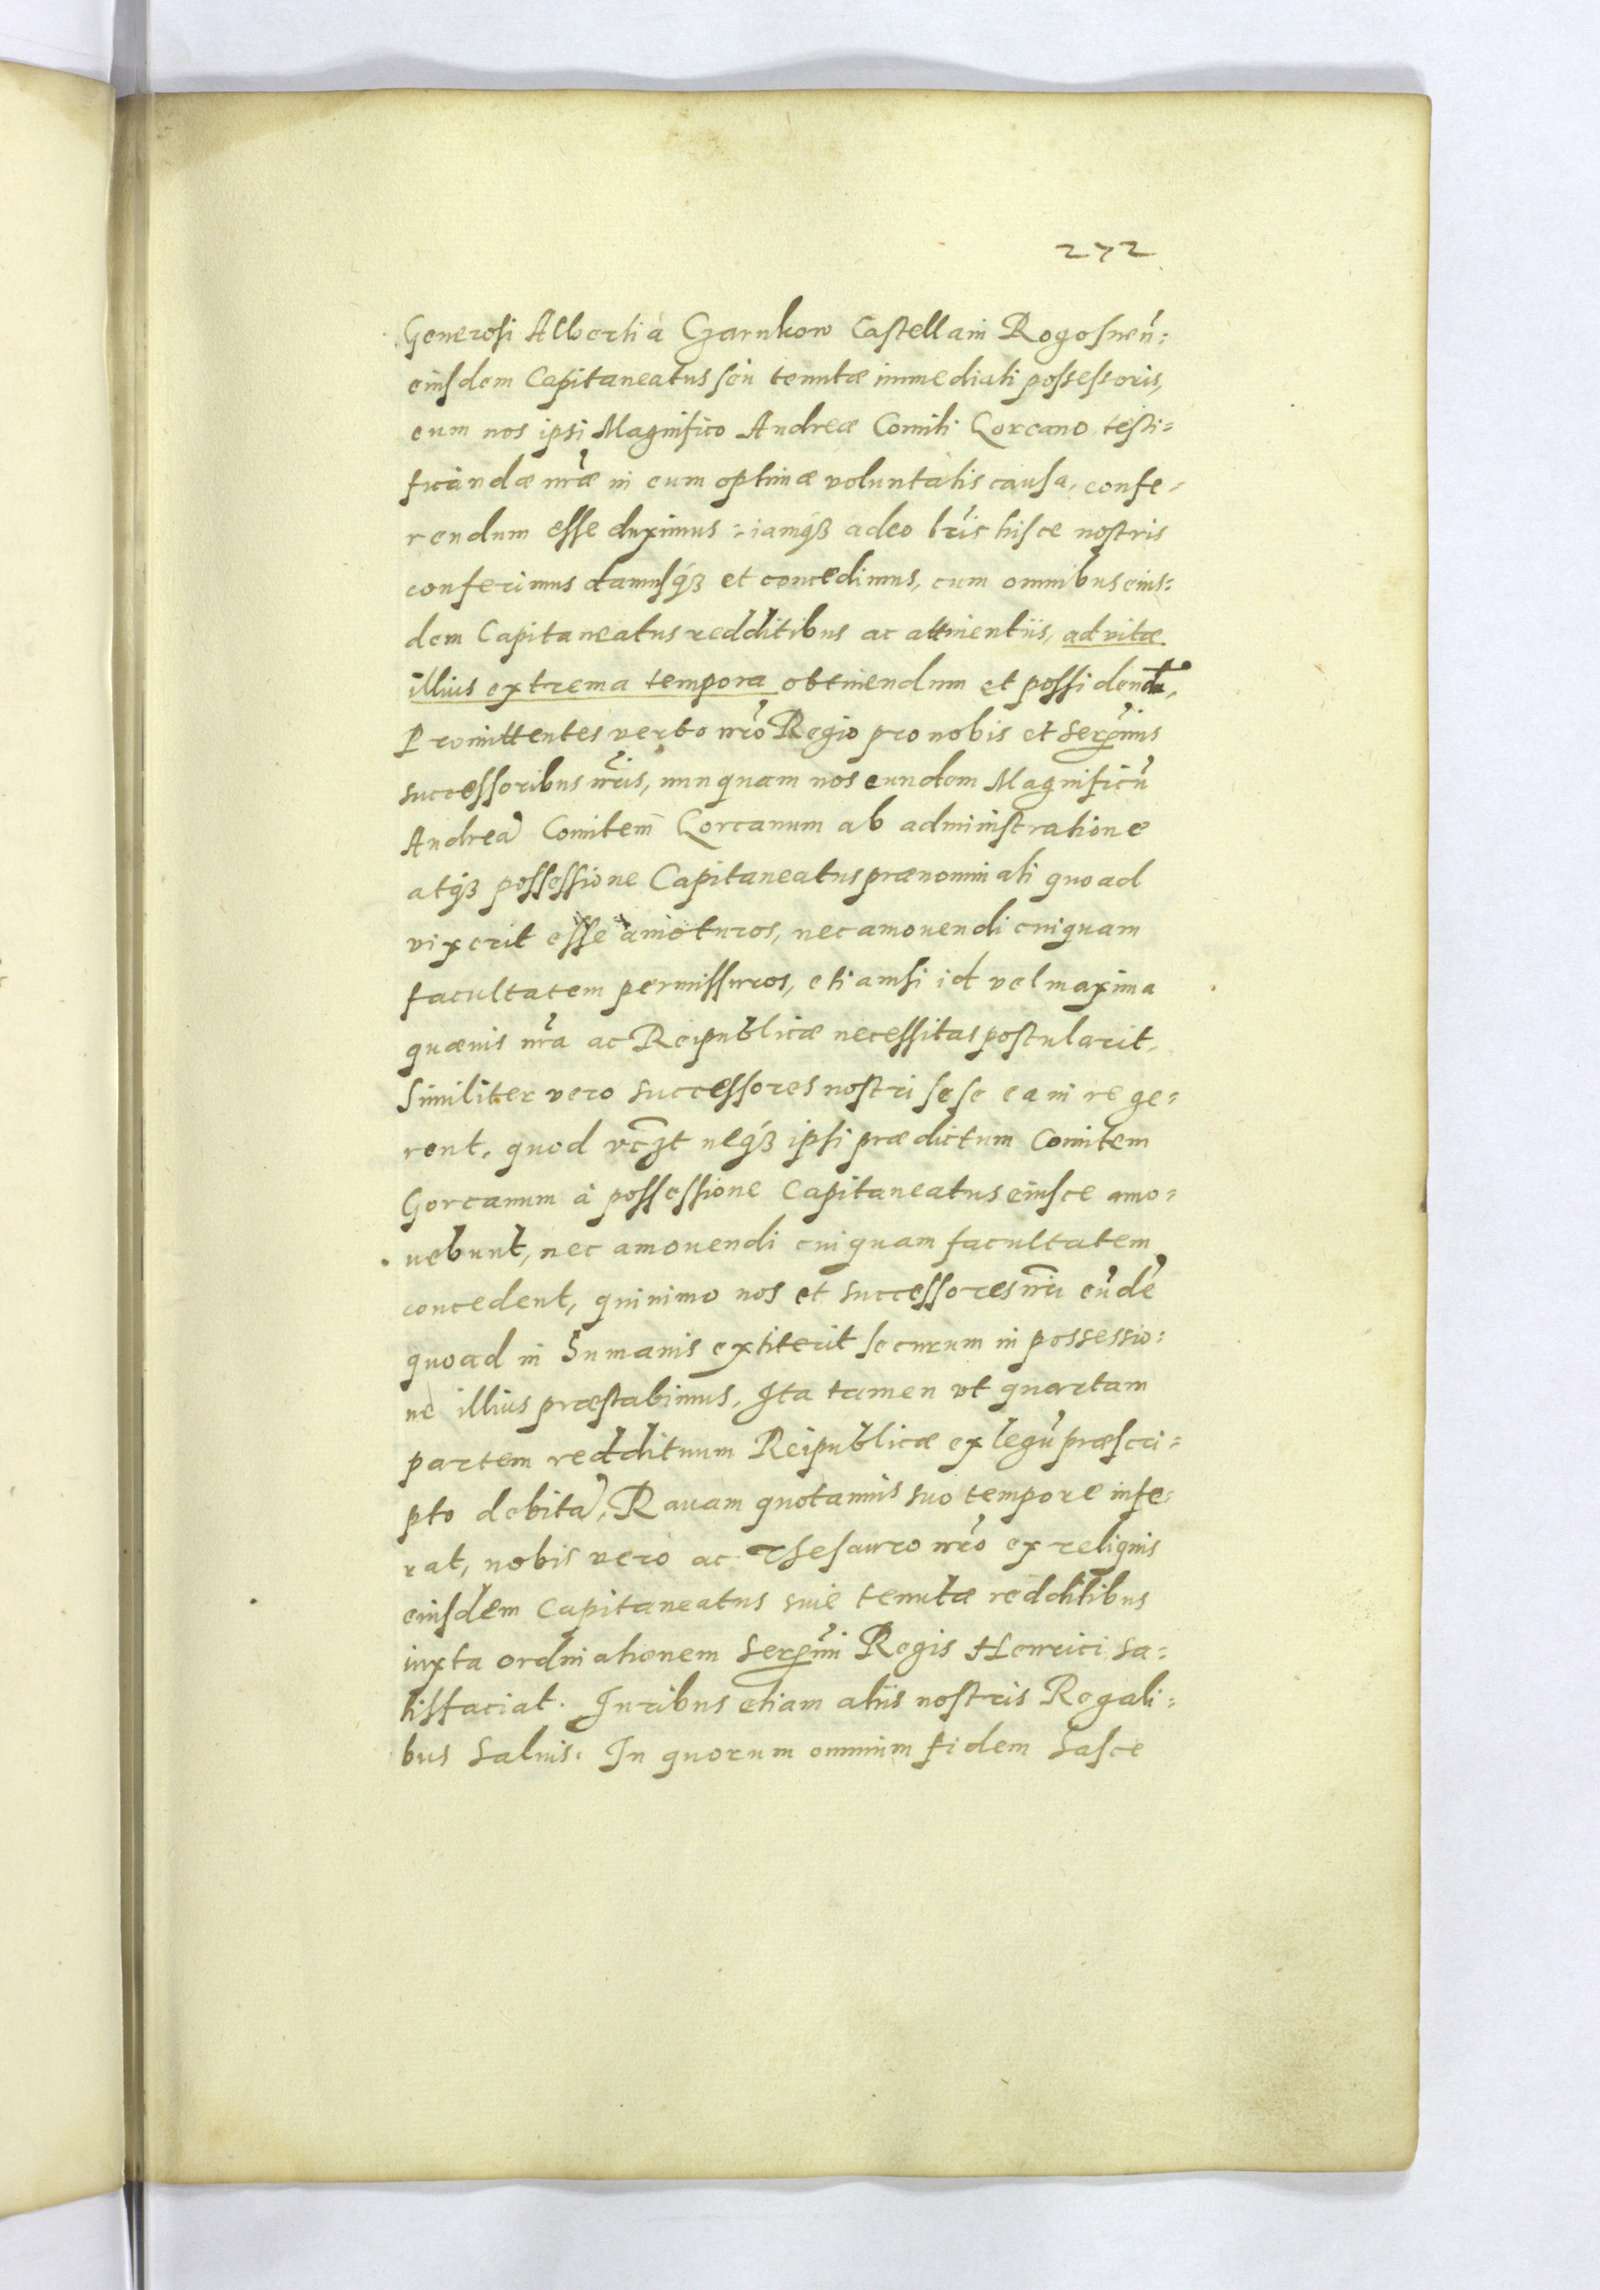 272
Generosi Alberti à Czarnkow Castellani Rogosneñ:
eiusdem Capitaneatus seu tenutæ immediati possessoris,
eum nos ipsi Magnifico Andreæ Comiti Gorcano testi=
ficandæ nr̃æ in eum optimæ voluntatis causa, confe=
rendum esse duximus: iamq́ꝫ adeo lr̃is hisce nostris
conferimus damusq́ꝫ et concedimus, cum omnibus eius=
dem Capitaneatus redditibus ac attinentiis, ad vitæ
illius extrema tempora obtinendum et possidendũ,
Promittentes verbo nr̃o Regio pro nobis et Serẽnis
successoribus nr̃is, nunquam nos eundem Magnificũ
Andreã Comitem Gorcanum ab administratione
atq́ꝫ possessione Capitaneatus prænominati quoad
vixerit esse amoturos, nec amouendi cuiquam
facultatem permissuros, etiamsi id vel maxima
quæuis nr̃a ac Reipublicæ necessitas postularit,
Similiter vero successores nostri sese ea in re ge=
rent, quod vcꝫt neq́ꝫ ipsi prædictum Comitem
Gorcanum à possessione Capitaneatus eiusce amo=
uebunt, nec amouendi cuiquam facultatem
concedent, quinimo nos et successores nr̃i eũdẽ
quoad in humanis extiterit securum in possessio=
ne illius præstabimus, Ita tamen vt quartam
partem reddituum Reipublicæ ex legũ præscri=
pto debitã, Rauam quotannis suo tempore infe=
rat, nobis vero ac Thesauro nr̃o ex reliquis
eiusdem Capitaneatus siue tenutæ redditibus
iuxta ordinationem Serẽni Regis Henrici sa=
tisfaciat. Iuribus etiam aliis nostris Regali=
bus saluis. In quorum omnium fidem hasce